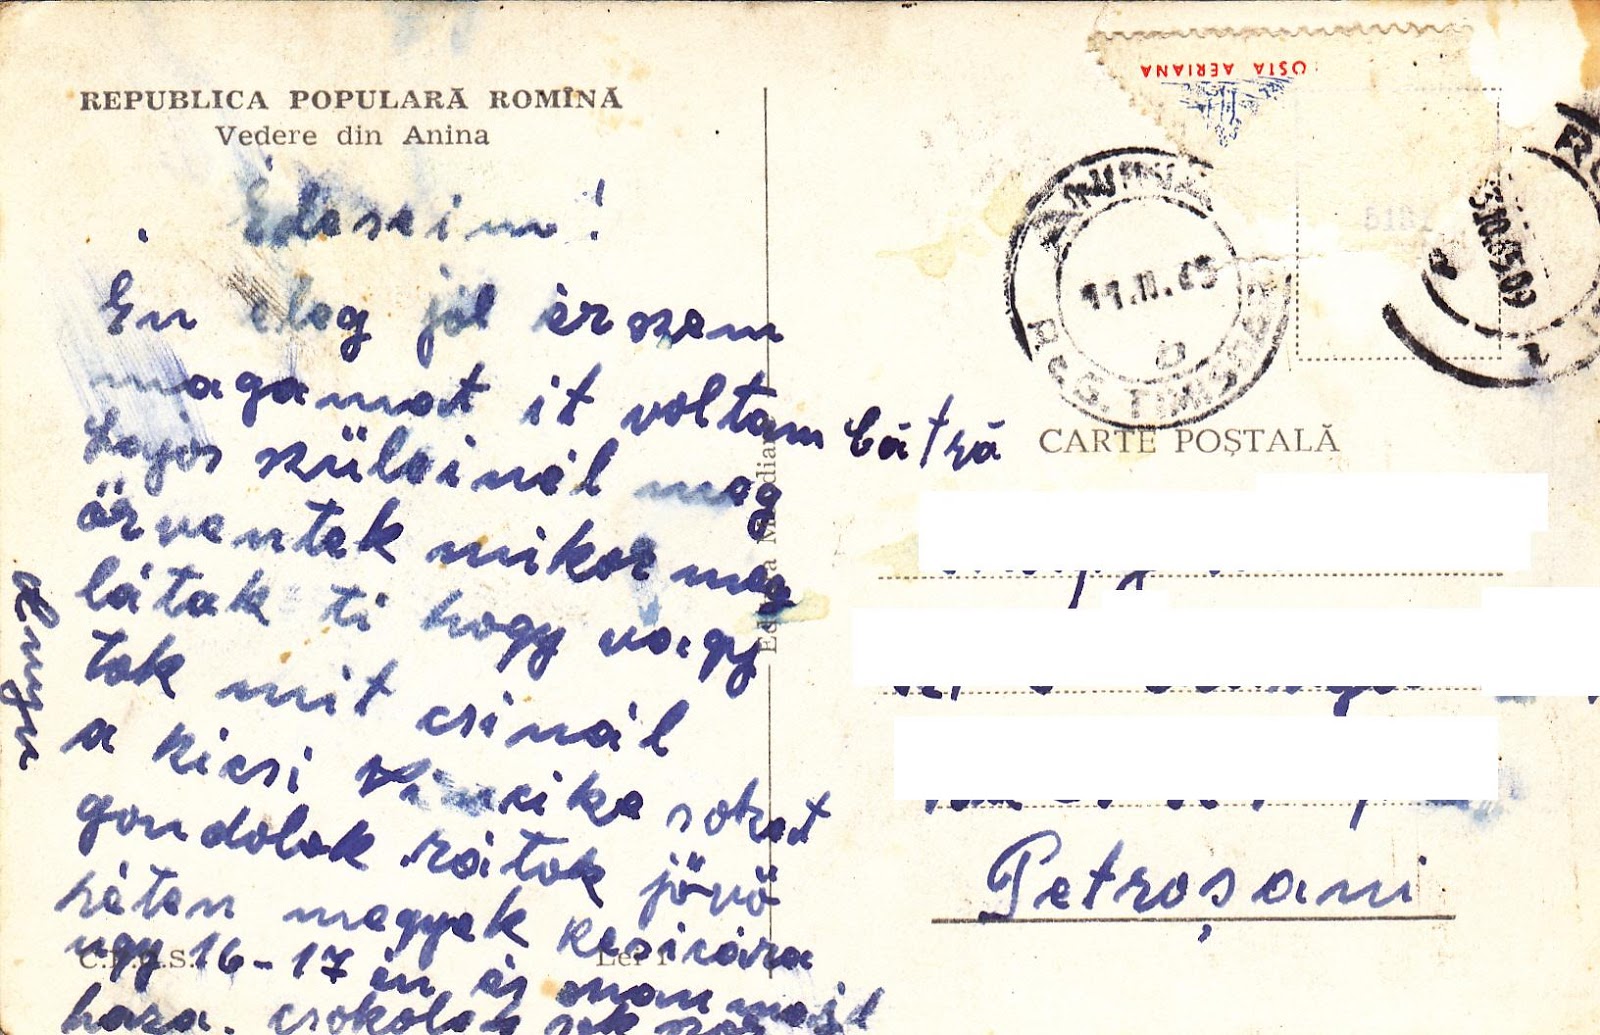 REPUBLICA POPULARĂ ROMÎNĂ
Vedere din Anina
Édeseim!
Én eleg jol érszem
magamat it voltam bátrá
Lajos szüleinél meg
örventek mikor meg
látak ti hogy vagy
tok mit csinál
a kicsi sokat
gondolok rátok jövö
héten megyek Resicára
ugy 16-17 én és onan majd
haza. csokolok sok
Anyu
Lei 1
OSTA AERIANA
ANINA
11.11.65
b
REG. TIMIȘOARA
CARTE POȘTALĂ
Petroșani